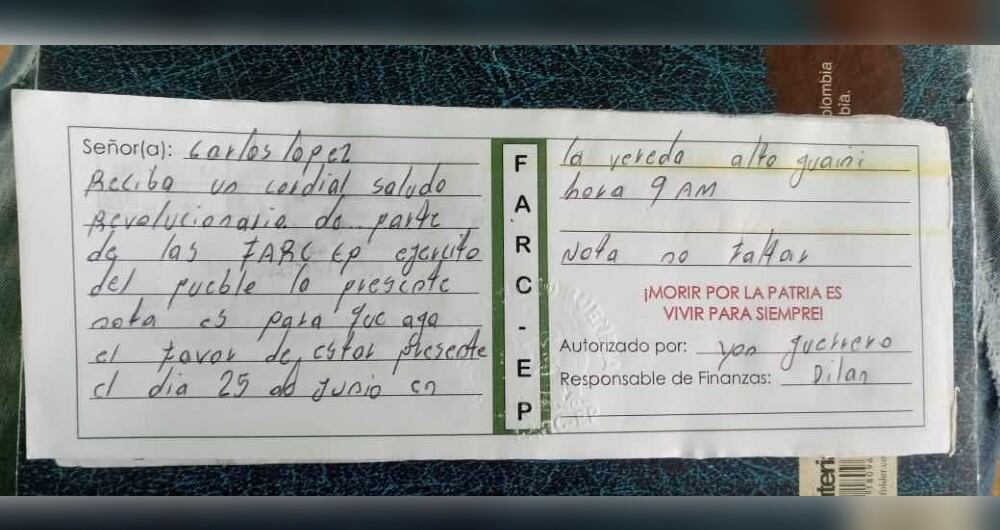 Señor(a): Carlos lopez
Reciba un cordial saludo
Revolucionario de parte
de las FARC EP ejercito
del pueble la presente
nota es para que aga
el favor de estar presente
el dia 25 de junio en
FARC-EP
la vereda alto guaini
hora 9 AM
Nota no faltar
¡MORIR POR LA PATRIA ES
VIVIR PARA SIEMPRE!
Autorizado por: yon guerrero
Responsable de Finanzas: Dilan
olombia
bia.